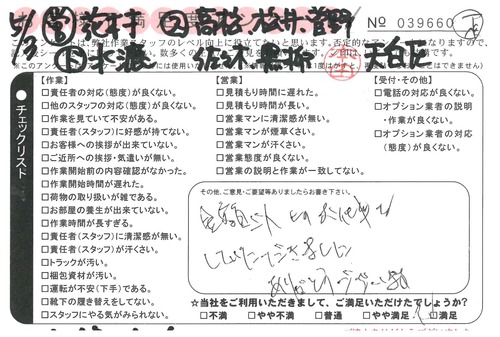 № 039660
【作業】
□責任者の対応(態度)が良くない。
□他のスタッフの対応(態度)が良くない。
□作業を見ていて不安がある。
□責任者(スタッフ)に好感が持てない。
□お客様への挨拶が出来ていない。
□ご近所への挨拶・気遣いが無い。
□作業開始前の内容確認がなかった。
□作業開始時間が遅れた。
□荷物の取り扱いが雑である。
□お部屋の養生が出来ていない。
□作業時間が長すぎる。
□責任者(スタッフ)に清潔感が無い。
□責任者(スタッフ)が汗くさい。
□トラックが汚い。
□梱包資材が汚い。
□運転が不安(下手)である。
□靴下の履き替えをしてない。
□スタッフにやる気がみられない。
【営業】
□見積もり時間に遅れた。
□見積もり時間が長い。
□営業マンに清潔感が無い。
□営業マンが煙草くさい。
□営業マンが汗くさい。
□営業態度が良くない。
□営業の説明と作業が一致してない。
【受付・その他】
□電話の対応が良くない。
□オプション業者の説明
・作業が良くない。
□オプション業者の対応
(態度)が良くない。
●チェックリスト
その他、ご意見・ご要望等ありましたらお書き下さい。
していただきました
ありがとうございました
☆当社をご利用いただきまして、ご満足いただけたでしょうか?
□不満 □やや不満 □普通 □やや満足 □満足